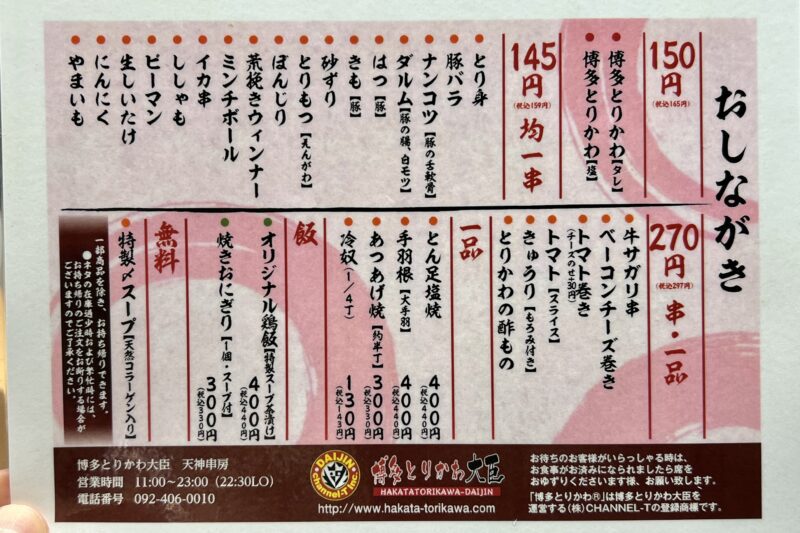 おしながき
150円
(税込165円)
博多とりかわ【タレ】
博多とりかわ【塩】
145円 均一串
(税込159円)
とり身
豚バラ
ナンコツ【豚の舌軟骨】
ダルム【豚の腸、白モツ】
はつ【豚】
きも【豚】
砂ずり
とりもつ【えんがわ】
ぼんじり
荒挽きウィンナー
ミンチボール
イカ串
ししゃも
ピーマン
生しいたけ
にんにく
やまいも
270円 串・一品
(税込297円)
牛サガリ串
ベーコンチーズ巻き
トマト巻き
(チーズのせ+30円)
トマト【スライス】
きゅうり【もろみ付き】
とりかわの酢もの
一品
とん足塩焼 400円
(税込440円)
手羽根【大手羽】 400円
(税込440円)
あつあげ焼【約半丁】 300円
(税込330円)
冷奴(1/4丁) 130円
(税込143円)
飯
オリジナル鶏飯【特製スープ茶漬け】 400円
(税込440円)
焼きおにぎり【1個・スープ付】 300円
(税込330円)
無料
特製〆スープ【天然コラーゲン入り】
一部商品を除き、お持ち帰りできます。
●ネタの在庫過少時および繁忙時には、
お持ち帰りのご注文をお断りする場合が
ございますのでご了承ください。
博多とりかわ大臣 天神串房
営業時間 11:00~23:00 (22:30LO)
電話番号 092-406-0010
DAIJIN
Channel-T Inc.
博多とりかわ大臣
HAKATATORIKAWA-DAIJIN
http://www.hakata-torikawa.com
お待ちのお客様がいらっしゃる時は、
お食事がお済みになられましたら席を
おゆずりくださいます様、お願い致します。
「博多とりかわ®」は博多とりかわ大臣を
運営する(株)CHANNEL-Tの登録商標です。